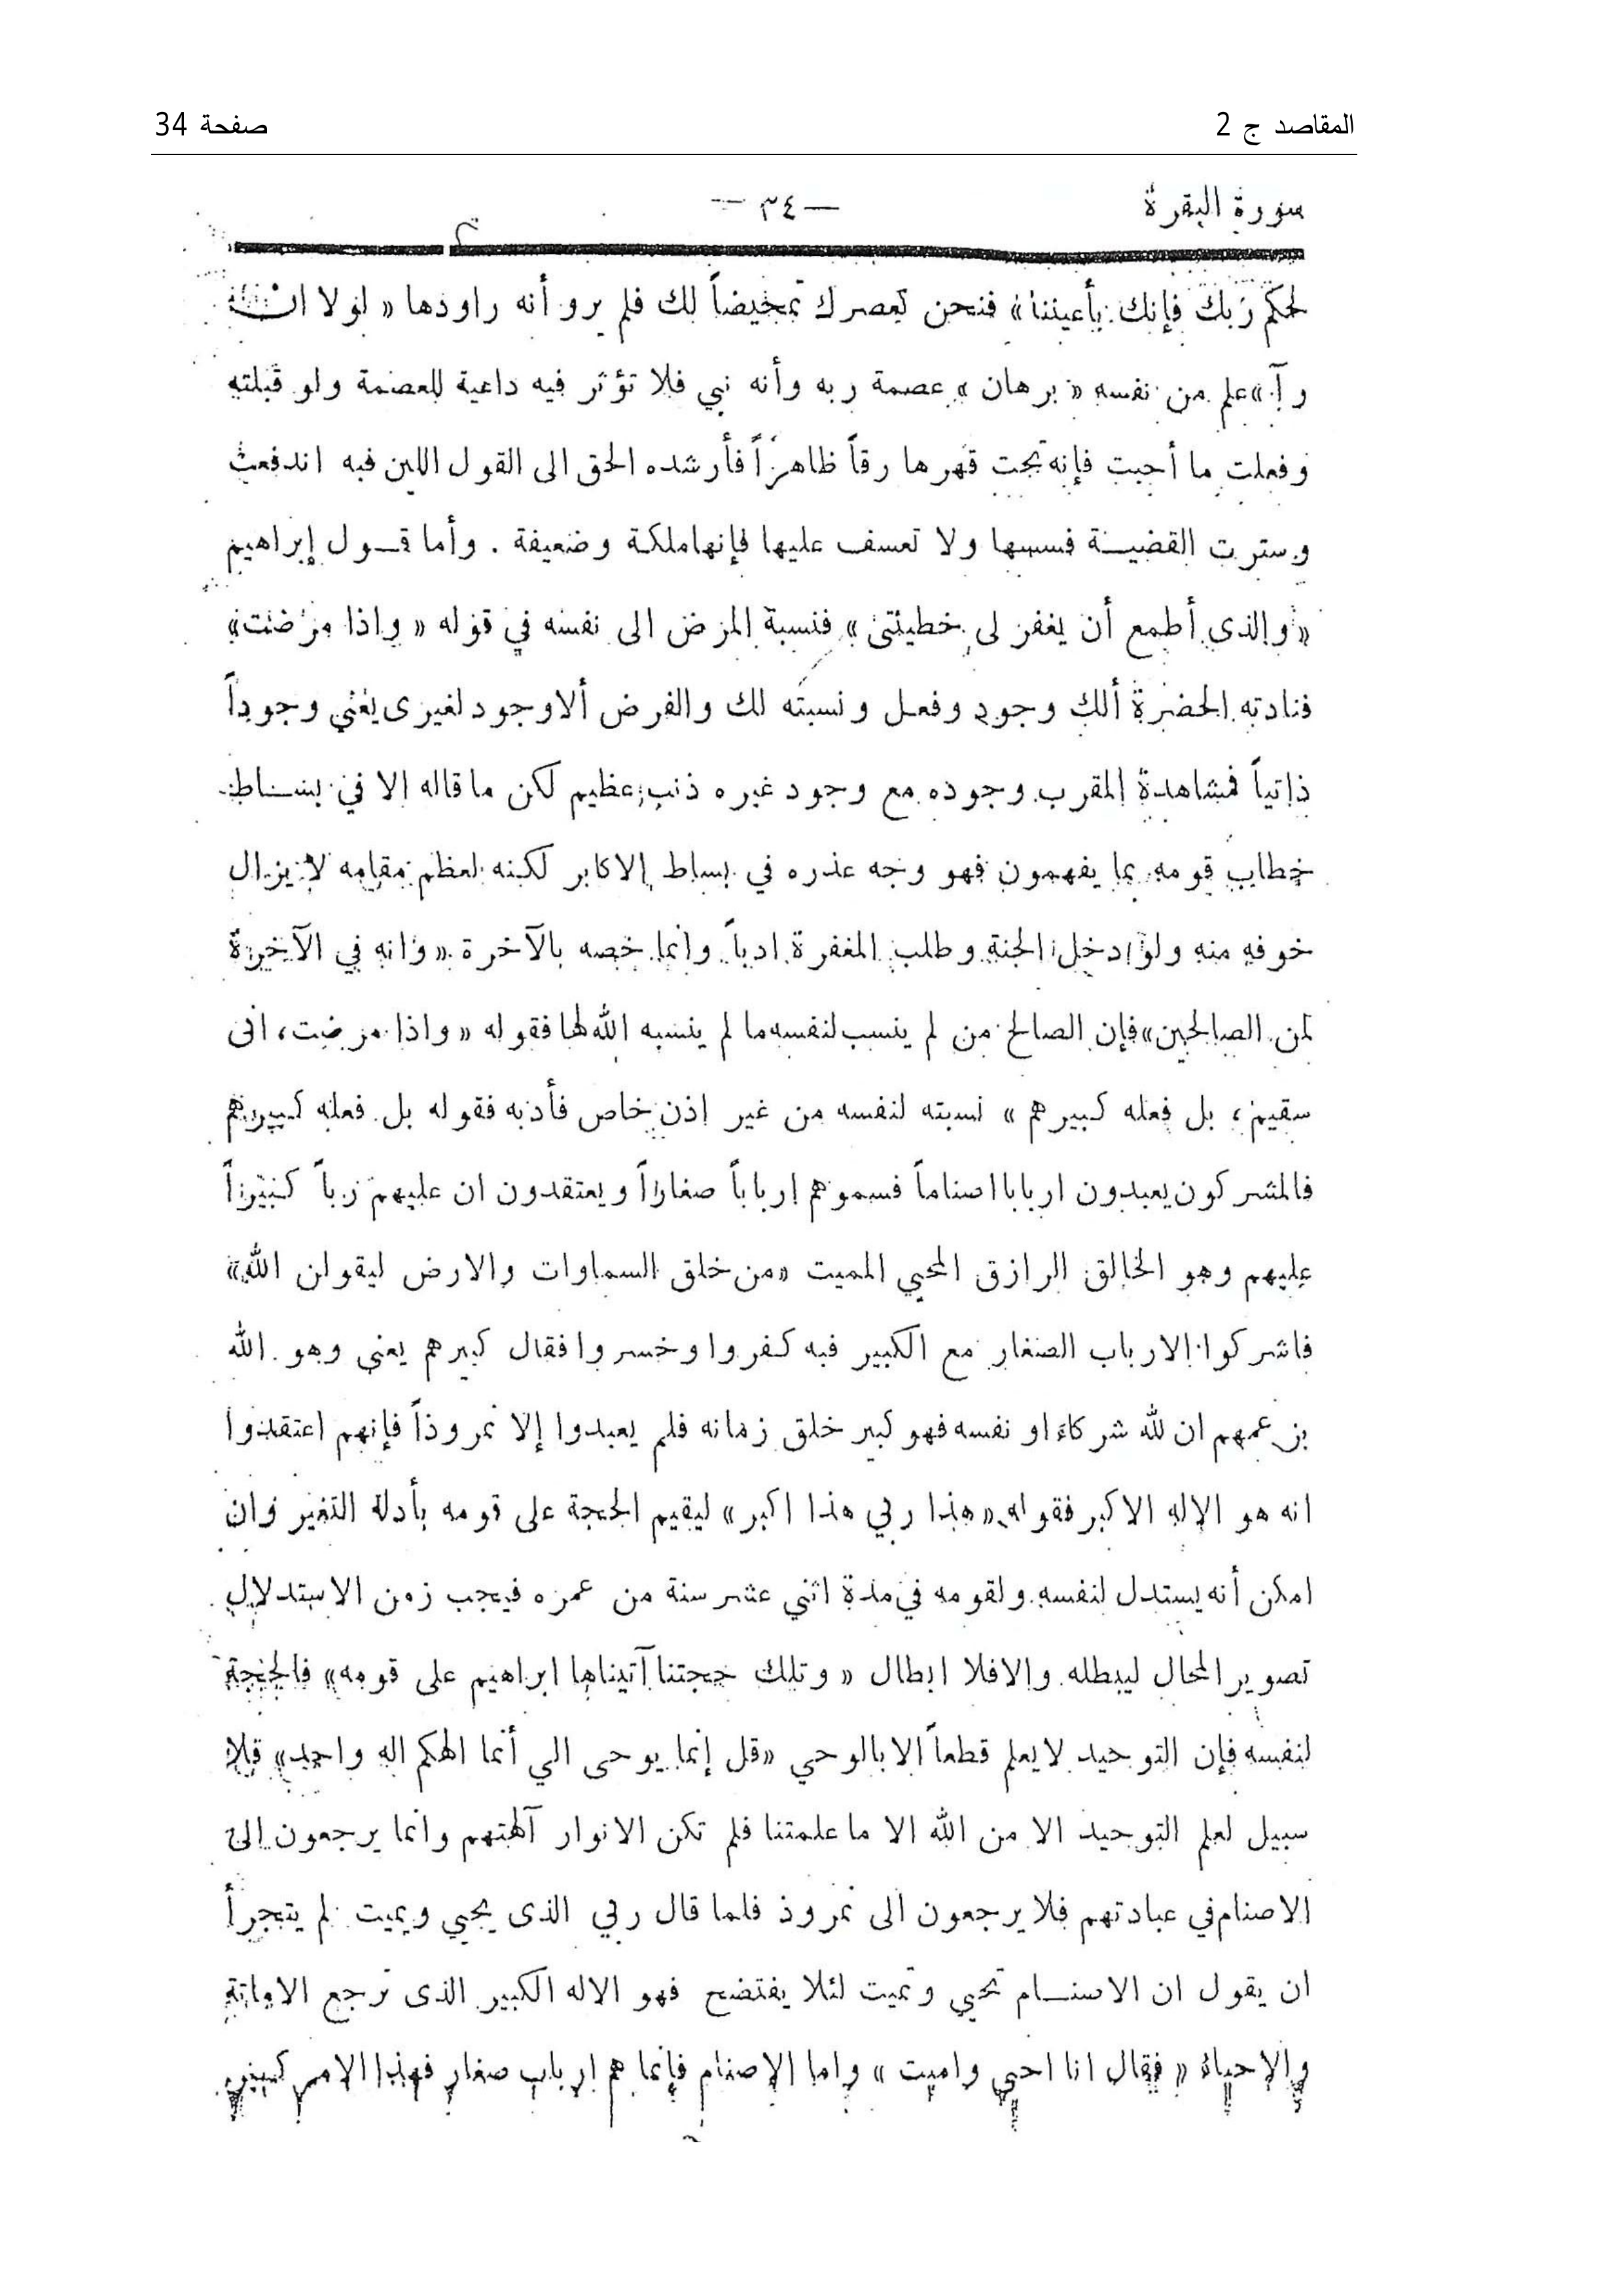 المقاصد ج 2 صفحة 34
سورة البقرة — ٣٤ —
لحكم ربك فإنك بأعيننا» فنحن نعصرك تمخيضاً لك فلم يرو أنه راودها « لولا ان
رآ» علم من نفسه « برهان » عصمة ربه وأنه نبي فلا تؤثر فيه داعية للعصمة ولو قبلته
وفعلت ما أحبت فإنه تحت قهرها رقاً ظاهراً فأرشده الحق الى القول اللين فبه اندفعت
وسترت القضيـة فسسها ولا تعسف عليها فإنها ملكة وضعيفة . وأما قـول إبراهيم
« والذي أطمع أن يغفر لى خطيئتى » فنسبة المرض الى نفسه في قوله « واذا مرضت»
فنادته الحضرة ألك وجود وفعل ونسبته لك والفرض ألا وجود لغيرى يغني وجوداً
ذاتياً فمشاهدة المقرب وجوده مع وجود غيره ذنب عظيم لكن ما قاله الا في بسـاط
خطاب قومه بما يفهمون فهو وجه عذره في بساط الاكابر لكنه لعظم مقامه لا يزال
خوفه منه ولو دخل الجنة وطلب المغفرة ادباً وانما خصه بالآخرة « وانه في الآخرة
لمن الصالحين» فإن الصالح من لم ينسب لنفسه ما لم ينسبه الله لها فقوله « واذا مرضت، انى
سقيم، بل فعله كبيرهم » نسبته لنفسه من غير اذن خاص فأدبه فقوله بل فعله كبيرهم
فالمشركون يعبدون اربابا اصناماً فسموهم ارباباً صغاراً ويعتقدون ان عليهم رباً كبيراً
عليهم وهو الخالق الرازق المحيي المميت «من خلق السماوات والارض ليقولن الله»
فاشركوا الارباب الصغار مع الكبير فبه كفروا وخسروا فقال كبيرهم يعني وهو الله
بزعمهم ان لله شركاء او نفسه فهو كبير خلق زمانه فلم يعبدوا إلا نمروذاً فإنهم اعتقدوا
انه هو الإله الاكبر فقوله «هذا ربي هذا اكبر» ليقيم الحجة على قومه بأدلة التغير وان
امكن أنه يستدل لنفسه ولقومه في مدة اثني عشر سنة من عمره فيجب زمن الاستدلال
تصوير المحال ليبطله والا فلا ابطال « وتلك حجتنا آتيناها ابراهيم على قومه» فالحجة
لنفسه فإن التوحيد لا يعلم قطعاً الا بالوحي «قل إنما يوحى الي أنما الهكم اله واحد» فلا
سبيل لعلم التوحيد الا من الله الا ما علمتنا فلم تكن الانوار آلهتهم وانما يرجعون الى
الاصنام في عبادتهم فلا يرجعون الى نمروذ فلما قال ربي الذى يحيي ويميت لم يتجرأ
ان يقول ان الاصنـام تحيي وتميت لئلا يفتضح فهو الاله الكبير الذى ترجع الاماتة
والإحياء « فقال انا احيي واميت » واما الاصنام فإنما هم ارباب صغار فهذا الامر كبير